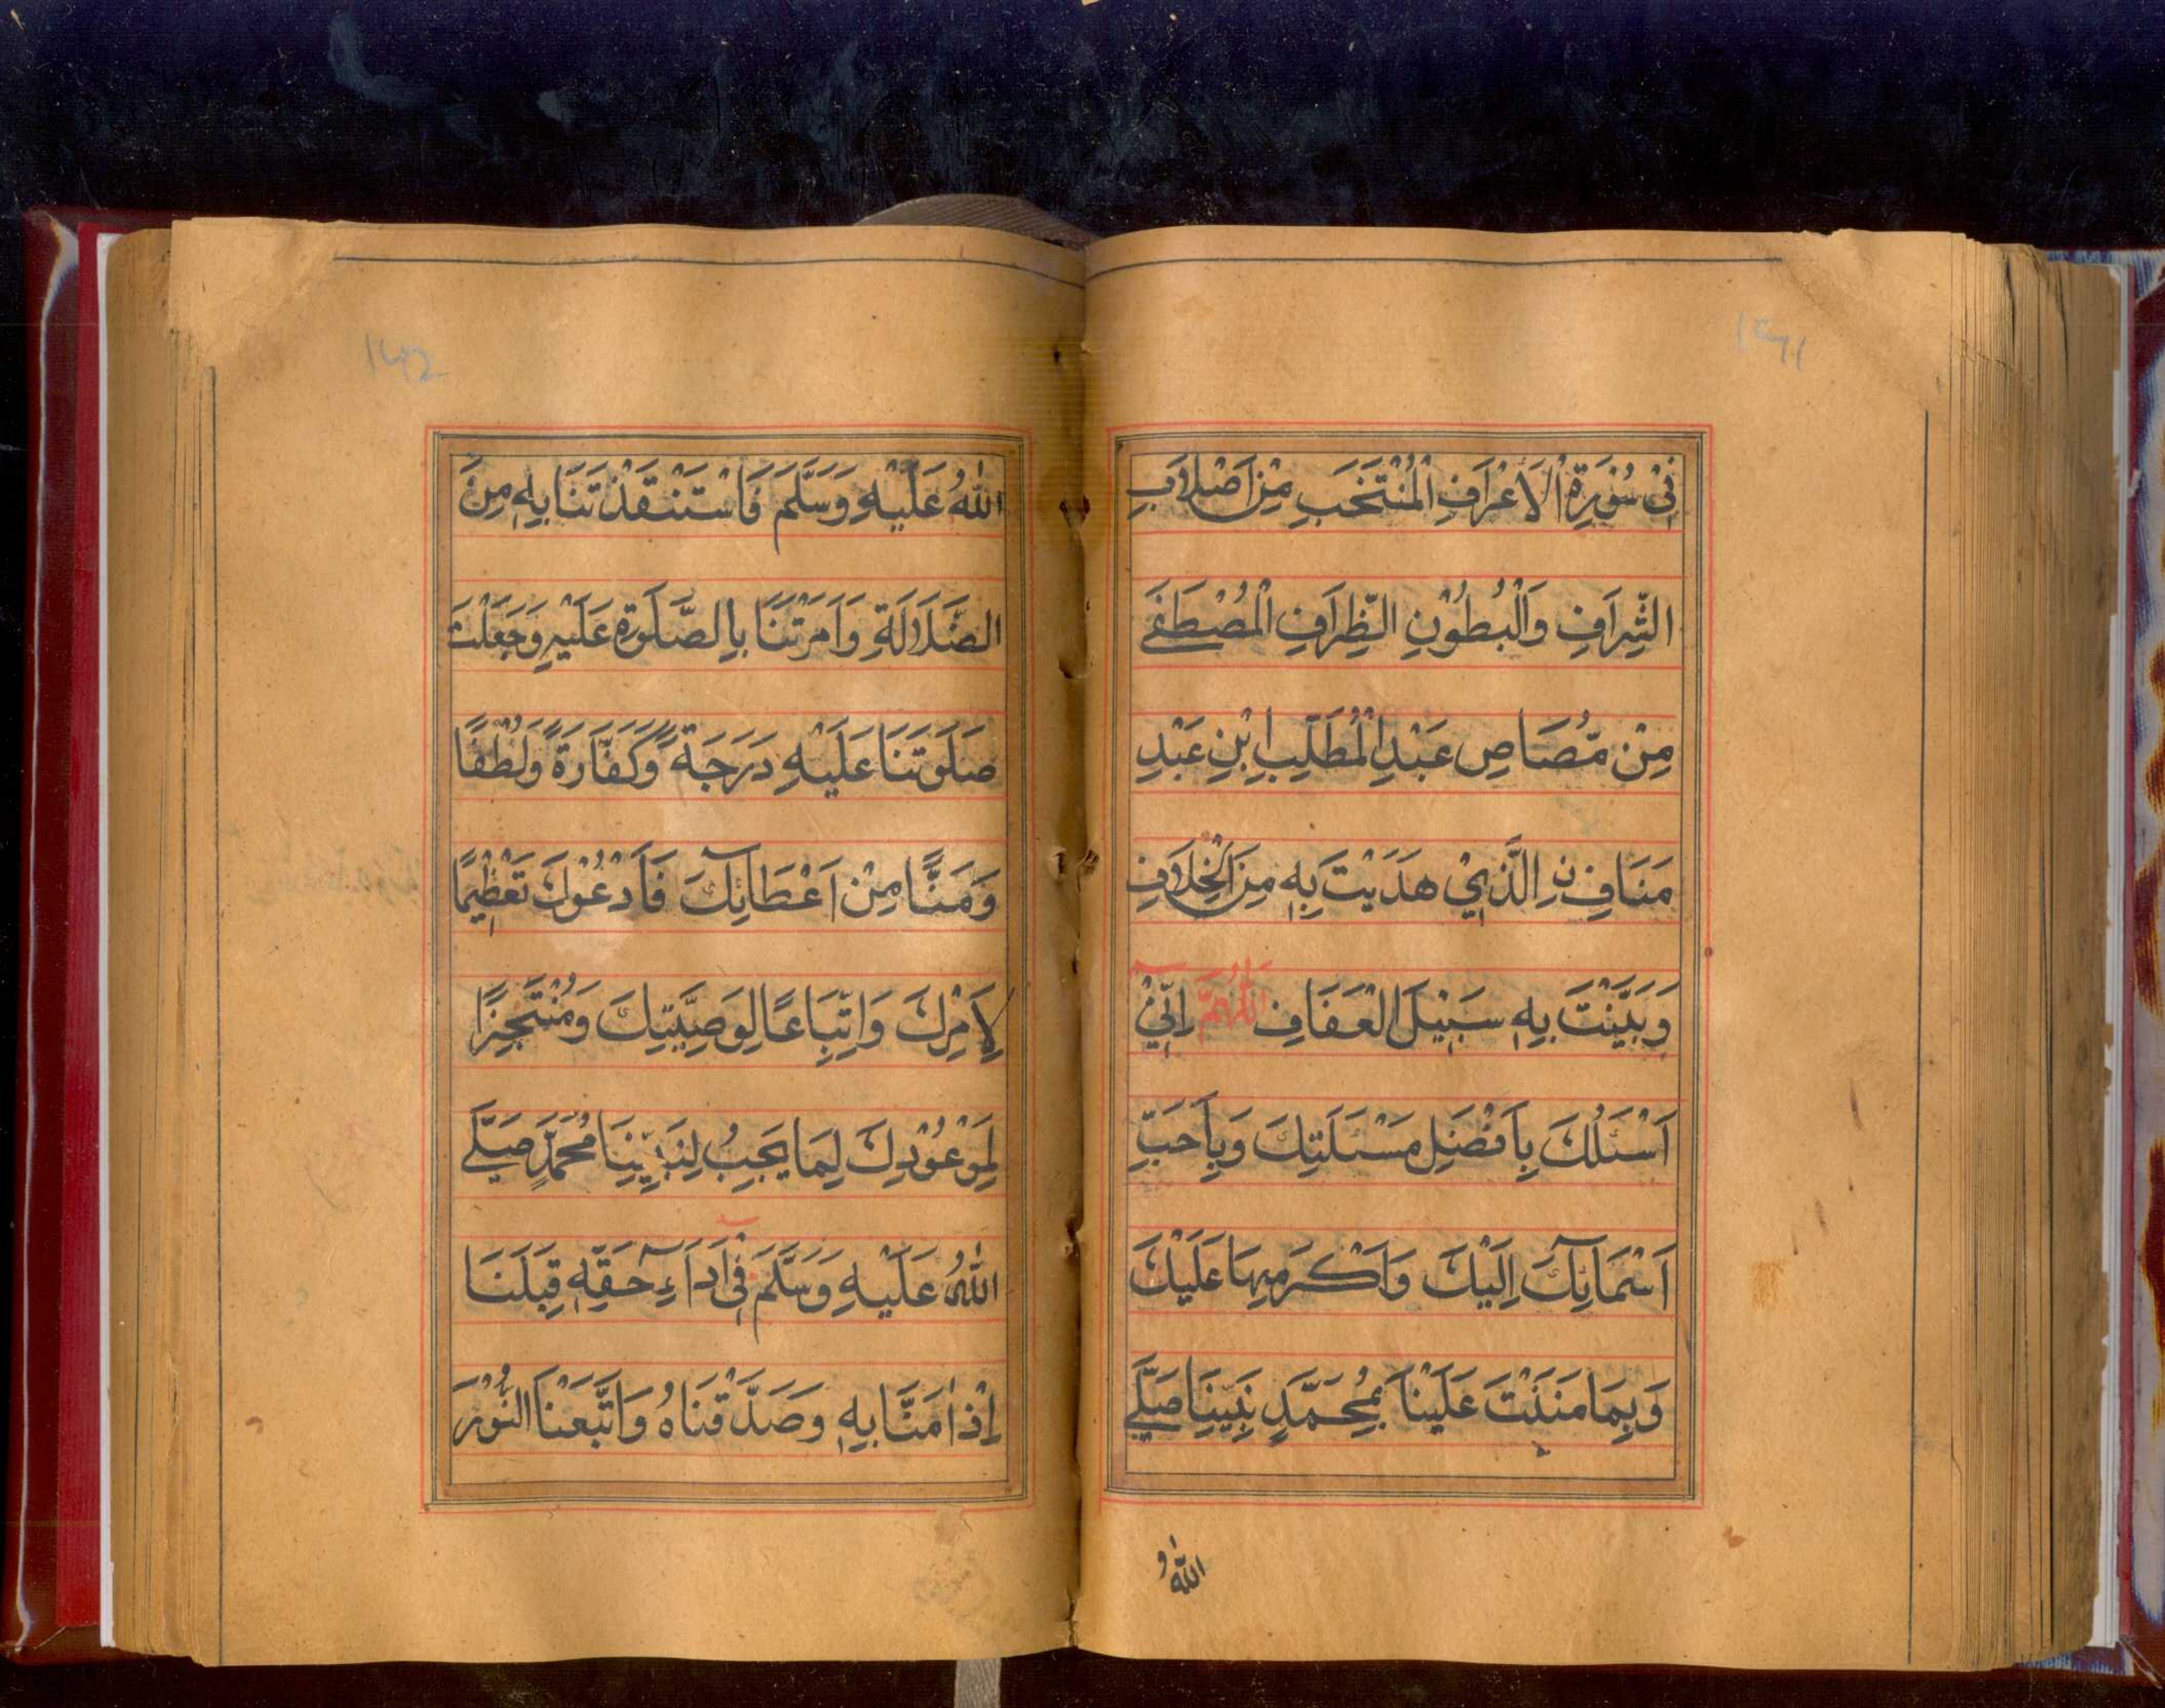 فِيْ سُوْرَةِ الْاَعْرَافِ الْمُنْتَخَبِ مِنْ اَصْلَابِ
الشِّرَافِ وَالْبُطُوْنِ الظِّرَافِ الْمُصْطَفٰى
مِنْ مُّصَاصِ عَبْدِ الْمُطَّلِبِ ابْنِ عَبْدِ
مَنَافِ نِ الَّذِيْ هَدَيْتَ بِهٖ مِنَ الْخِلَافِ
وَبَيَّنْتَ بِهٖ سَبِيْلَ الْعَفَافِ اَللّٰهُمَّ اِنِّيْ
اَسْئَلُكَ بِاَفْضَلِ مَسْئَلَتِكَ وَبِاَحَبِّ
اَسْمَآئِكَ اِلَيْكَ وَاَكْرَمِهَا عَلَيْكَ
وَبِمَا مَنَنْتَ عَلَيْنَا بِمُحَمَّدٍ نَبِيِّنَا صَلَّى
اللّٰهُ
اللّٰهُ عَلَيْهِ وَسَلَّمَ فَاسْتَنْقَذْتَنَا بِهٖ مِنَ
الضَّلَالَةِ وَاَمَرْتَنَا بِالصَّلٰوةِ عَلَيْهِ وَجَعَلْتَ
صَلٰوتَنَا عَلَيْهِ دَرَجَةً وَّكَفَّارَةً وَلُطْفًا
وَمَنًّا مِنْ اَعْطَآئِكَ فَاَدْعُوْكَ تَعْظِيْمًا
لِاَمْرِكَ وَاتِّبَاعًا لِوَصِيَّتِكَ وَمُنْتَجِزًا
لِمَوْعُوْدِكَ لِمَا يَجِبُ لِنَبِيِّنَا مُحَمَّدٍ صَلَّى
اللّٰهُ عَلَيْهِ وَسَلَّمَ فِيْ اَدَآءِ حَقِّهٖ قِبَلَنَا
اِذْ اٰمَنَّا بِهٖ وَصَدَّقْنَاهُ وَاتَّبَعْنَا النُّوْرَ